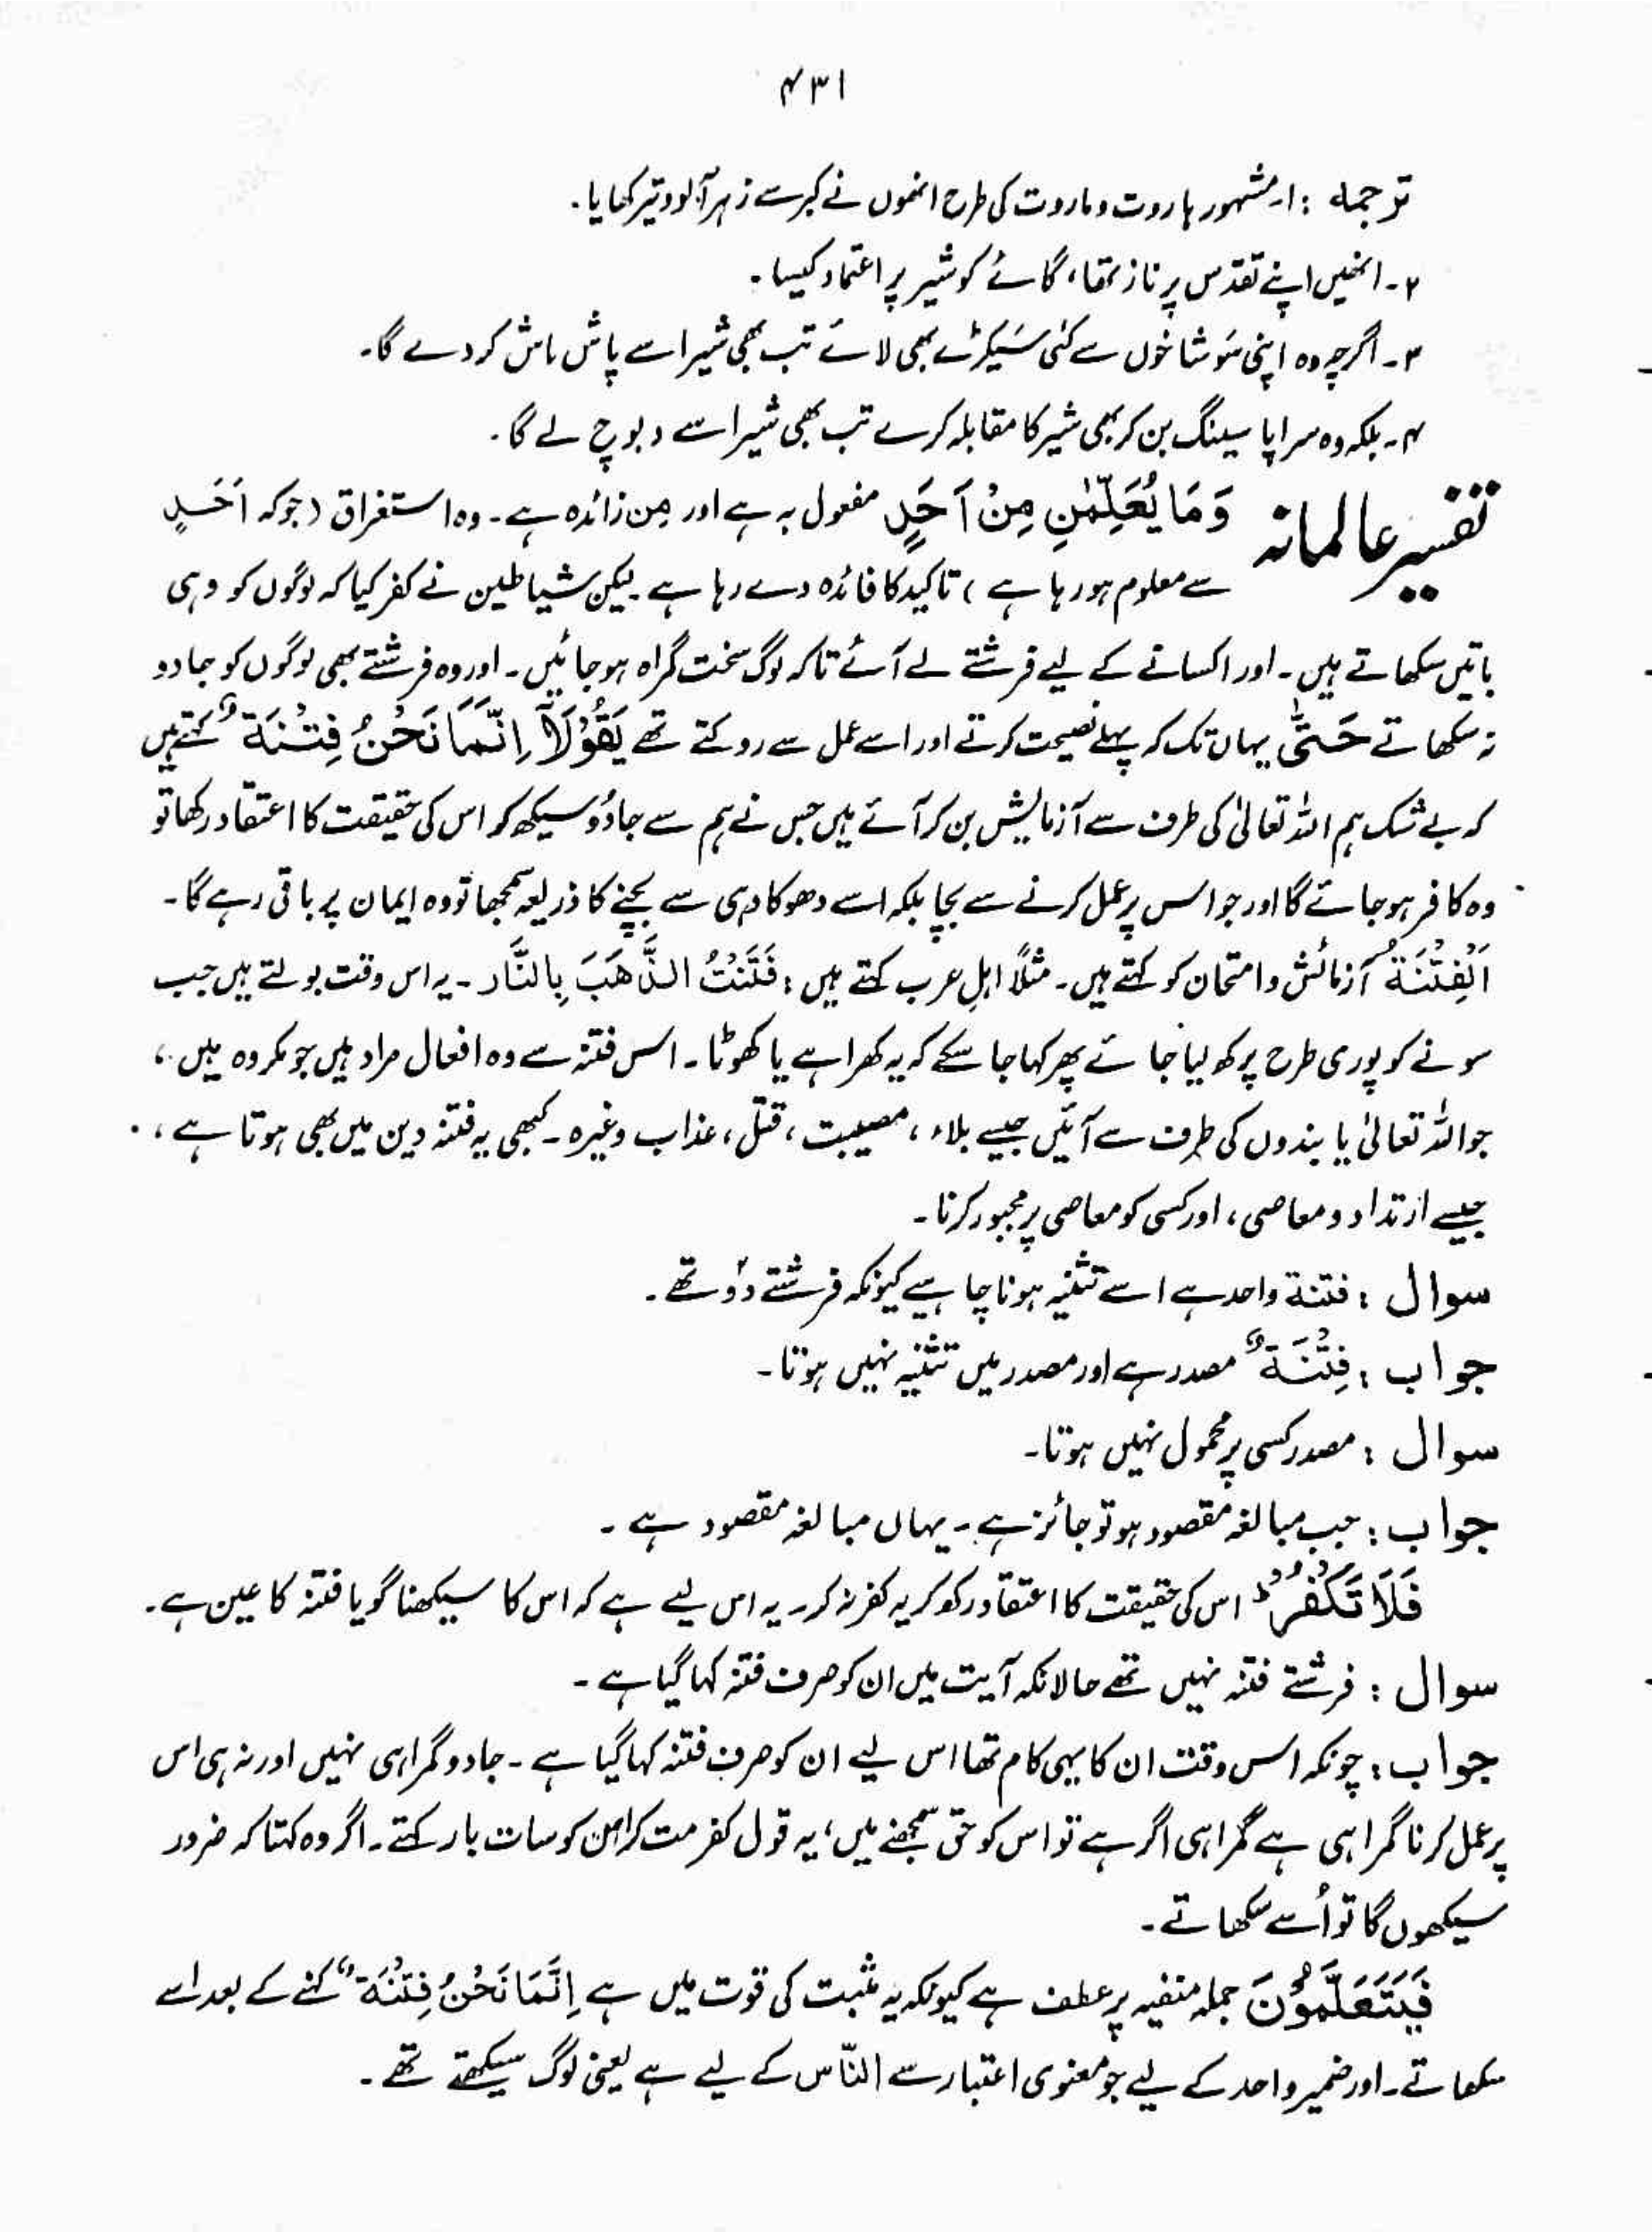 ۴۳۱
ترجمہ : ۱۔ مشہور ہاروت و ماروت کی طرح انھوں نے کبر سے زہر آلود تیر کھایا۔
۲۔ انھیں اپنے تقدس پر ناز تھا، گائے کو شیر پر اعتماد کیسا۔
۳۔ اگرچہ وہ اپنی سَو شاخوں سے کئی سَیکڑے بھی لائے تب بھی شیر اسے پاش پاش کر دے گا۔
۴۔ بلکہ وہ سراپا سینگ بن کر بھی شیر کا مقابلہ کرے تب بھی شیر اسے دبوچ لے گا۔
تفسیر عالمانہ وَمَا یُعَلِّمٰنِ مِنْ اَحَدٍ مفعول بہ ہے اور مِن زائدہ ہے۔ وہ استغراق (جو کہ اَحَدٍ
سے معلوم ہو رہا ہے) تاکید کا فائدہ دے رہا ہے۔ لیکن شیاطین نے کفر کیا کہ لوگوں کو وہی
باتیں سکھاتے ہیں۔ اور اکسانے کے لیے فرشتے لے آئے تاکہ لوگ سخت گمراہ ہو جائیں۔ اور وہ فرشتے بھی لوگوں کو جادو
نہ سکھاتے حَتّٰی یہاں تک کہ پہلے نصیحت کرتے اور اسے عمل سے روکتے تھے یَقُوْلَاۤ اِنَّمَا نَحْنُ فِتْنَةٌ کہتے ہیں
کہ بے شک ہم اللہ تعالیٰ کی طرف سے آزمایش بن کر آئے ہیں جس نے ہم سے جادُو سیکھ کر اس کی حقیقت کا اعتقاد رکھا تو
وہ کافر ہو جائے گا اور جو اس پر عمل کرنے سے بچا بلکہ اسے دھوکا دہی سے بچنے کا ذریعہ سمجھا تو وہ ایمان پر باقی رہے گا۔
اَلْفِتْنَةُ آزمائش و امتحان کو کہتے ہیں۔ مثلًا اہلِ عرب کہتے ہیں : فَتَنْتُ الذَّھَبَ بِالنَّار ۔ یہ اس وقت بولتے ہیں جب
سونے کو پوری طرح پرکھ لیا جائے پھر کہا جا سکے کہ یہ کھرا ہے یا کھوٹا۔ اس فتنہ سے وہ افعال مراد ہیں جو مکروہ ہیں،
جو اللہ تعالیٰ یا بندوں کی طرف سے آئیں جیسے بلاء، مصیبت، قتل، عذاب وغیرہ۔ کبھی یہ فتنہ دین میں بھی ہوتا ہے،
جیسے ارتداد و معاصی، اور کسی کو معاصی پر مجبور کرنا۔
سوال : فتنة واحد ہے اسے تثنیہ ہونا چاہیے کیونکہ فرشتے دوؔ تھے۔
جواب : فِتْنَةٌ مصدر ہے اور مصدر میں تثنیہ نہیں ہوتا۔
سوال : مصدر کسی پر محمول نہیں ہوتا۔
جواب : جب مبالغہ مقصود ہو تو جائز ہے۔ یہاں مبالغہ مقصود ہے۔
فَلَا تَکْفُرْ ؕ اس کی حقیقت کا اعتقاد رکھ کر یہ کفر نہ کر۔ یہ اس لیے ہے کہ اس کا سیکھنا گویا فتنہ کا عین ہے۔
سوال : فرشتے فتنہ نہیں تھے حالانکہ آیت میں ان کو صرف فتنہ کہا گیا ہے۔
جواب : چونکہ اس وقت ان کا یہی کام تھا اس لیے ان کو صرف فتنہ کہا گیا ہے۔ جادو گمراہی نہیں اور نہ ہی اس
پر عمل کرنا گمراہی ہے گمراہی اگر ہے تو اس کو حق سمجھنے میں؛ یہ قول کفر مت کر اس کو سات بار کہتے۔ اگر وہ کہتا کہ ضرور
سیکھوں گا تو اُسے سکھاتے۔
فَیَتَعَلَّمُوْنَ جملہ منفیہ پر عطف ہے کیونکہ یہ مثبت کی قوت میں ہے اِنَّمَا نَحْنُ فِتْنَةٌ کہنے کے بعد اسے
سکھاتے۔ اور ضمیر واحد کے لیے جو معنوی اعتبار سے النّاس کے لیے ہے یعنی لوگ سیکھتے تھے۔